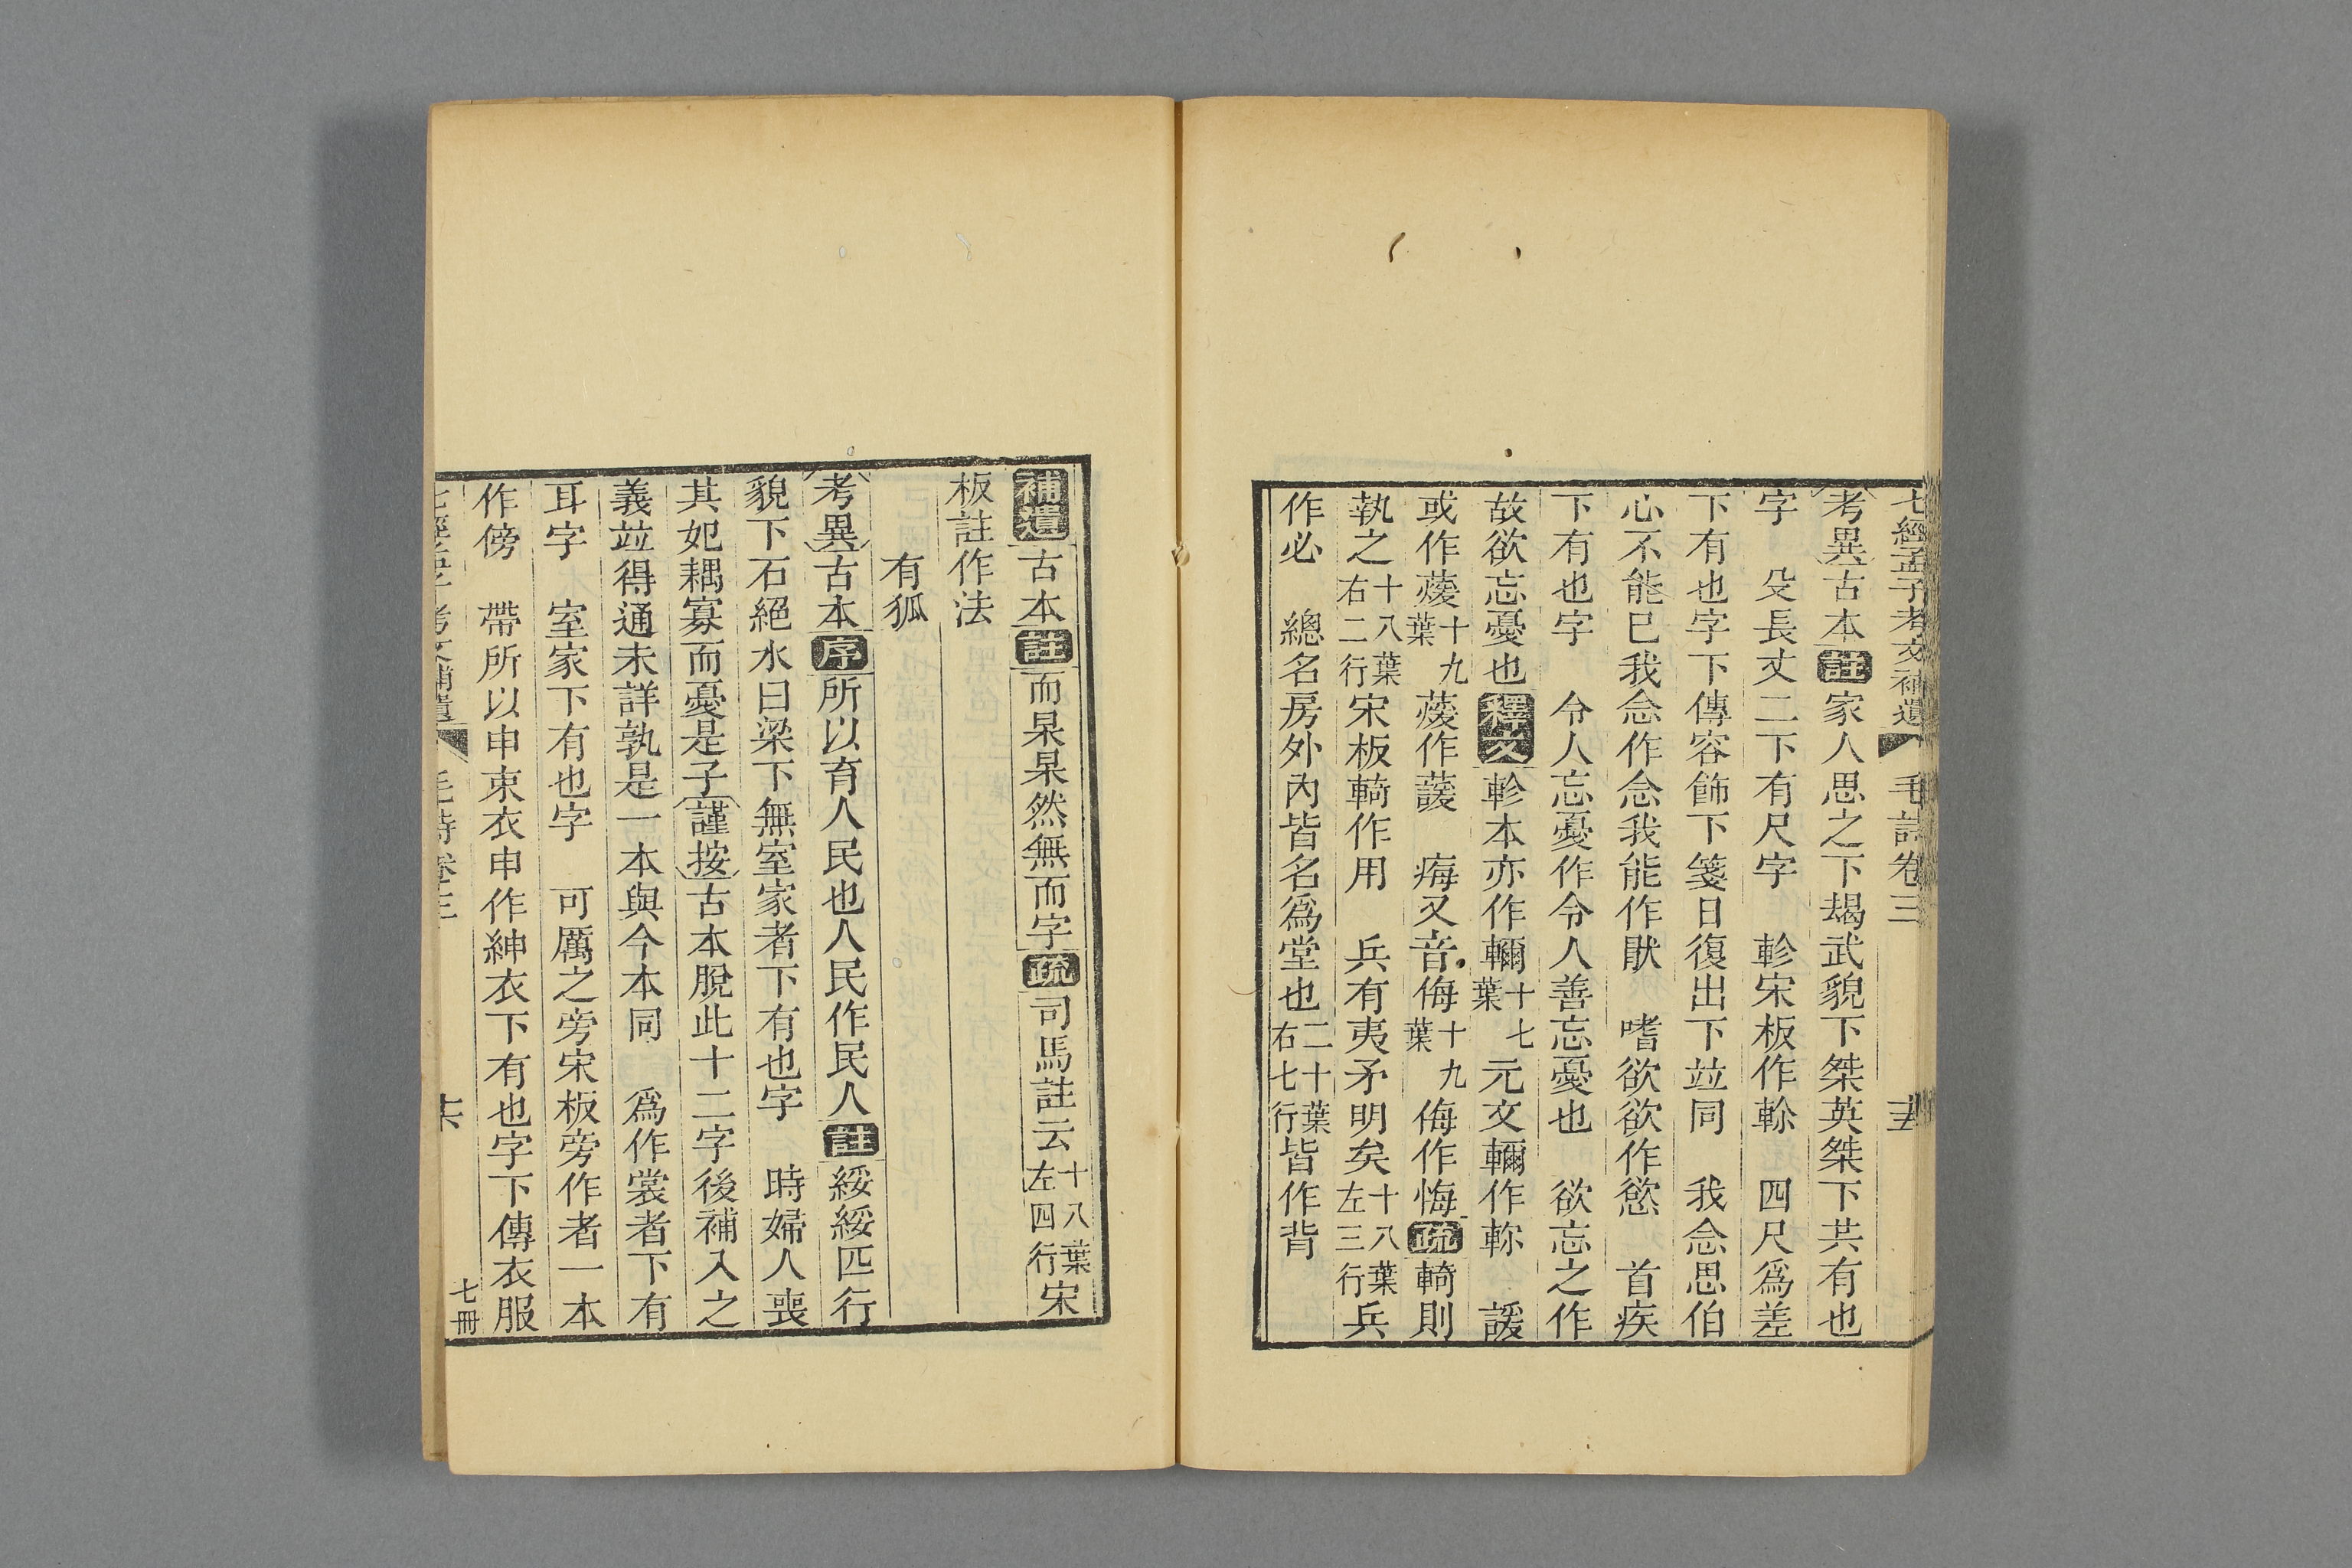 七經孟子考文補遺 毛詩卷三 十五
考異古本註家人思之下朅武貌下桀英桀下共有也
字 殳長丈二下有尺字 軫宋板作軫 四尺爲差
下有也字下傳容飾下箋日復出下竝同 我念思伯
心不能已我念作念我能作猒 嗜欲欲作慾 首疾
下有也字 令人忘憂作令人善忘憂也 欲忘之作
故欲忘憂也釋文軫本亦作轜十七葉元文轜作軫 諼
或作藼十九葉 藼作蘐 痗又音侮十九葉 侮作悔疏輢則
執之十八葉右二行宋板輢作用 兵有夷矛明矣十八葉左三行兵
作必 總名房外內皆名爲堂也二十葉右七行皆作背
補遺古本註而杲杲然無而字疏司馬註云十八葉左四行宋
板註作法
有狐
考異古本序所以育人民也人民作民人註綏綏匹行
貌下石絕水曰梁下無室家者下有也字 時婦人喪
其妃耦寡而憂是子謹按古本脫此十二字後補入之
義竝得通未詳孰是一本與今本同 爲作裳者下有
耳字 室家下有也字 可厲之旁宋板旁作者一本
作傍 帶所以申束衣申作紳衣下有也字下傳衣服
七經孟子考文補遺 毛詩卷三 十六 七冊